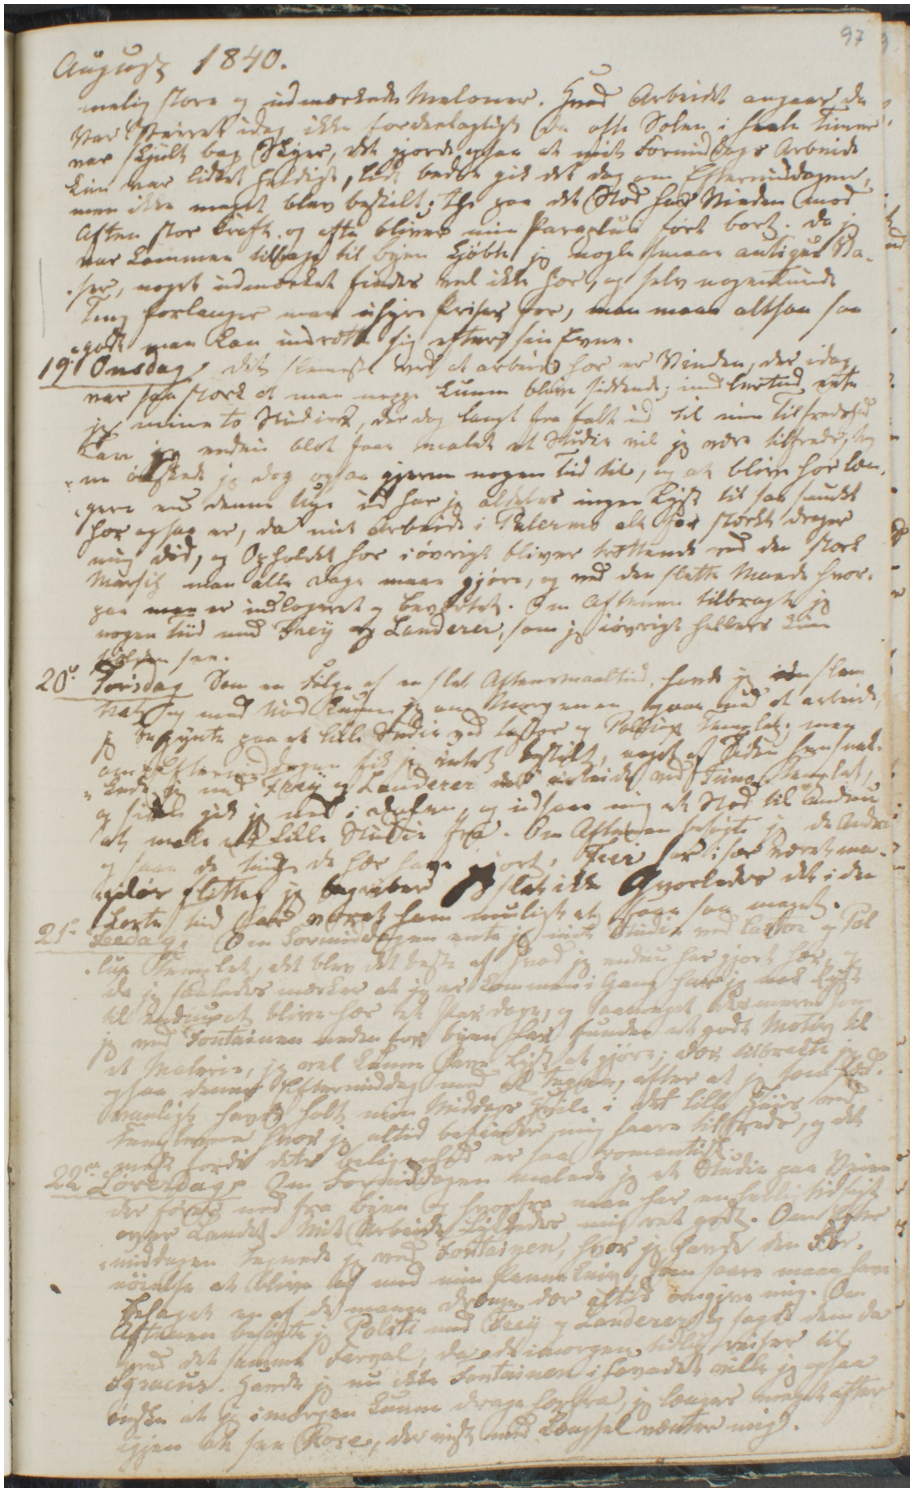 97
August 1840.
melig store og udmærkede Meloner. Hvad Arbeidet angaaer, da
var Veiret idag ikke fordeelagtigt da ofte Solen i hele Timer
var skjult bag Skyer, det gjorde ogsaa at mit Formiddags Arbeide
kun var lidet heldigt, lidt bedre gik det dog om Eftermiddagen,
men ikke meget blev bestilt; thi paa det Sted har Vinden mod
Aften stor Kraft og ofte bliver min Paraplui ført bort. Da jeg
var kommen tilbage til byen kjøbte jeg nogle smaae antique Va-
ser, noget udmærket findes vel ikke her, og selv nogenlunde
Ting forlanger man uhyre Priser for, man maae altsaa saa
godt man kan indrette sig efter sin Evne.
19. Onsdag, Det slemmeste ved at arbeide her er Vinden, der idag
var saa stærk at man neppe kunne blive siddende; imidlertid endte
jeg mine to Studier, der dog langt fra faldt ud til min Tilfredshed
kan jeg endnu blot faae malet et Studie vil jeg være tilfreds, teg-
ne ønskede jeg dog ogsaa gjerne nogen Tid til, og at blive her læn-
gere end denne Uge ud har jeg aldeles ingen Lyst til saa smukt
her ogsaa er, da mit arbeide i Palermo alt for stærkt drager
mig did, og Opholdet her i øvrigt bliver trættende ved den stærke
Marsch man alle Dage maae gjøre, og ved den slette Maade hvor-
paa man er indlogeret og beværtet. Om Aftenen tilbragte jeg
nogen Tid med Frey og Landerer, som jeg iøvrigt hellers kun
sielden seer.
20. Torsdag Som en Følge af en slet Aftensmaaltid, havde jeg en slem
Nat og med Nød kunne jeg om Morgenen gaae ud at arbeide,
jeg begynte paa et lille Studie ved Castor og Pollux Templet; men
om Eftermiddagen fik jeg intet bestilt, noget af Tiden hen snak-
kede jeg med Frey og Landerer der arbeide ved Juno Templet,
og siden gik jeg ned i Dalen, og udsaae mig et Sted til endnu
at male et lille Studie fra. Om Aftenen besøgte jeg de Andre
og saae de Ting de her have gjort, Frei har især været ma-
geløs flittig, jeg begriber slet ikke hvorledes det i den
korte Tid har været ham muligt at faae saa meget.
21. Fredag, Om Formiddagen endte jeg mit Studie ved Castor og Pol-
lux Templet, det blev det beste af hvad jeg endnu har gjort her, og
da jeg saaledes mærker at jeg er kommen i Gang har jeg nok Lyst
til endnu at blive her et Par Dage, og saameget desmere som
jeg ved Fontainen neden for byen har funden et godt Motiv til
et Malerie, jeg vel kunne have Lyst at gjøre; der tilbragte jeg
ogsaa denne Eftermiddag med at tegne, efter at jeg som sæd-
vanligt havde holdt min Middags Hvile i det lille Huus ved
Templerne hvor jeg altid befinder mig saare tilfreds, og det
mest fordi dets Beliggenhed er saa romantisk.
22. Løverdag, Om Formiddagen malede jeg et Studie paa Veien
der fører ned fra byen og hvorfra man har en herlig Udsigt
over Landet. Mit Arbeide lykkedes mig ret godt. Om Efter-
middagen tegnede jeg ved Fontainen, hvor jeg havde den For-
nøielse at blive af med min Pennekniv, som saare maae have
behaget en af de mange Drenge der altid omgive mig. Om
Aftenen besøgte jeg Politi med Frey og Landerer og sagde dem da
med det samme Farvel, da de imorgen tidlig reiser til
Syracus. Havde jeg nu ikke Fontainen i Hovedet ville jeg ogsaa
ønske at jeg imorgen kunne drage herfra, jeg længes meget efter
igjen at see Roser, der vist med Længsel venter mig.